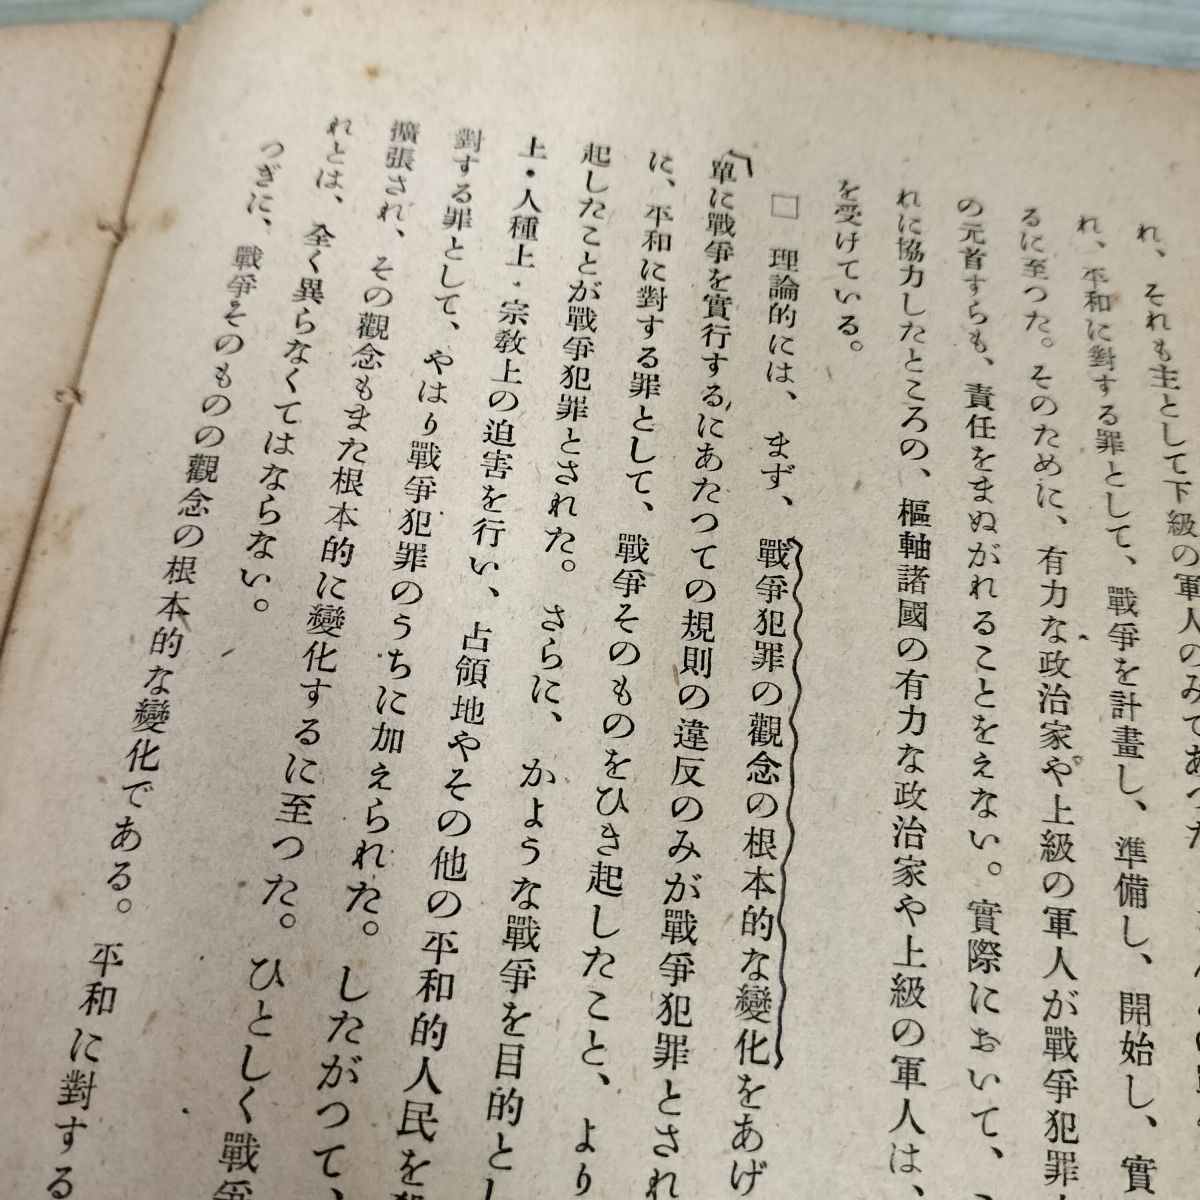 れ、それも主として下級の軍人のみであつた
れ、平和に對する罪として、戰爭を計畫し、準備し、開始し、實
るに至つた。そのために、有力な政治家や上級の軍人が戰爭犯罪
の元首すらも、責任をまぬがれることをえない。實際において、
れに協力したところの、樞軸諸國の有力な政治家や上級の軍人は、
を受けている。
□ 理論的には、まず、戰爭犯罪の觀念の根本的な變化をあげ
單に戰爭を實行するにあたつての規則の違反のみが戰爭犯罪とされ
に、平和に對する罪として、戰爭そのものをひき起したこと、より
起したことが戰爭犯罪とされた。さらに、かような戰爭を目的とし
上・人種上・宗敎上の迫害を行い、占領地やその他の平和的人民を
對する罪として、やはり戰爭犯罪のうちに加えられた。したがつて、
擴張され、その觀念もまた根本的に變化するに至つた。ひとしく戰爭
れとは、全く異らなくてはならない。
つぎに、戰爭そのものの觀念の根本的な變化である。平和に對する